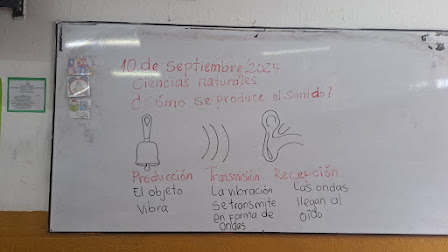 10 de septiembre 2024
Ciencias naturales
¿Cómo se produce el sonido?
Producción Transmisión Recepción
El objeto La vibración Las ondas
Vibra se transmite llegan al
en forma de oído
ondas